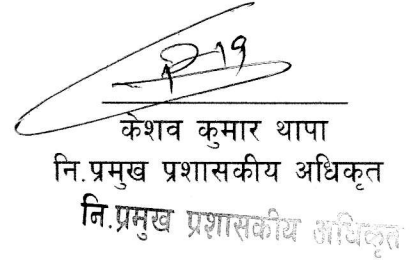 केशव कुमार थापा
नि.प्रमुख प्रशासकीय अधिकृत
नि.प्रमुख प्रशासकीय अधिकृत